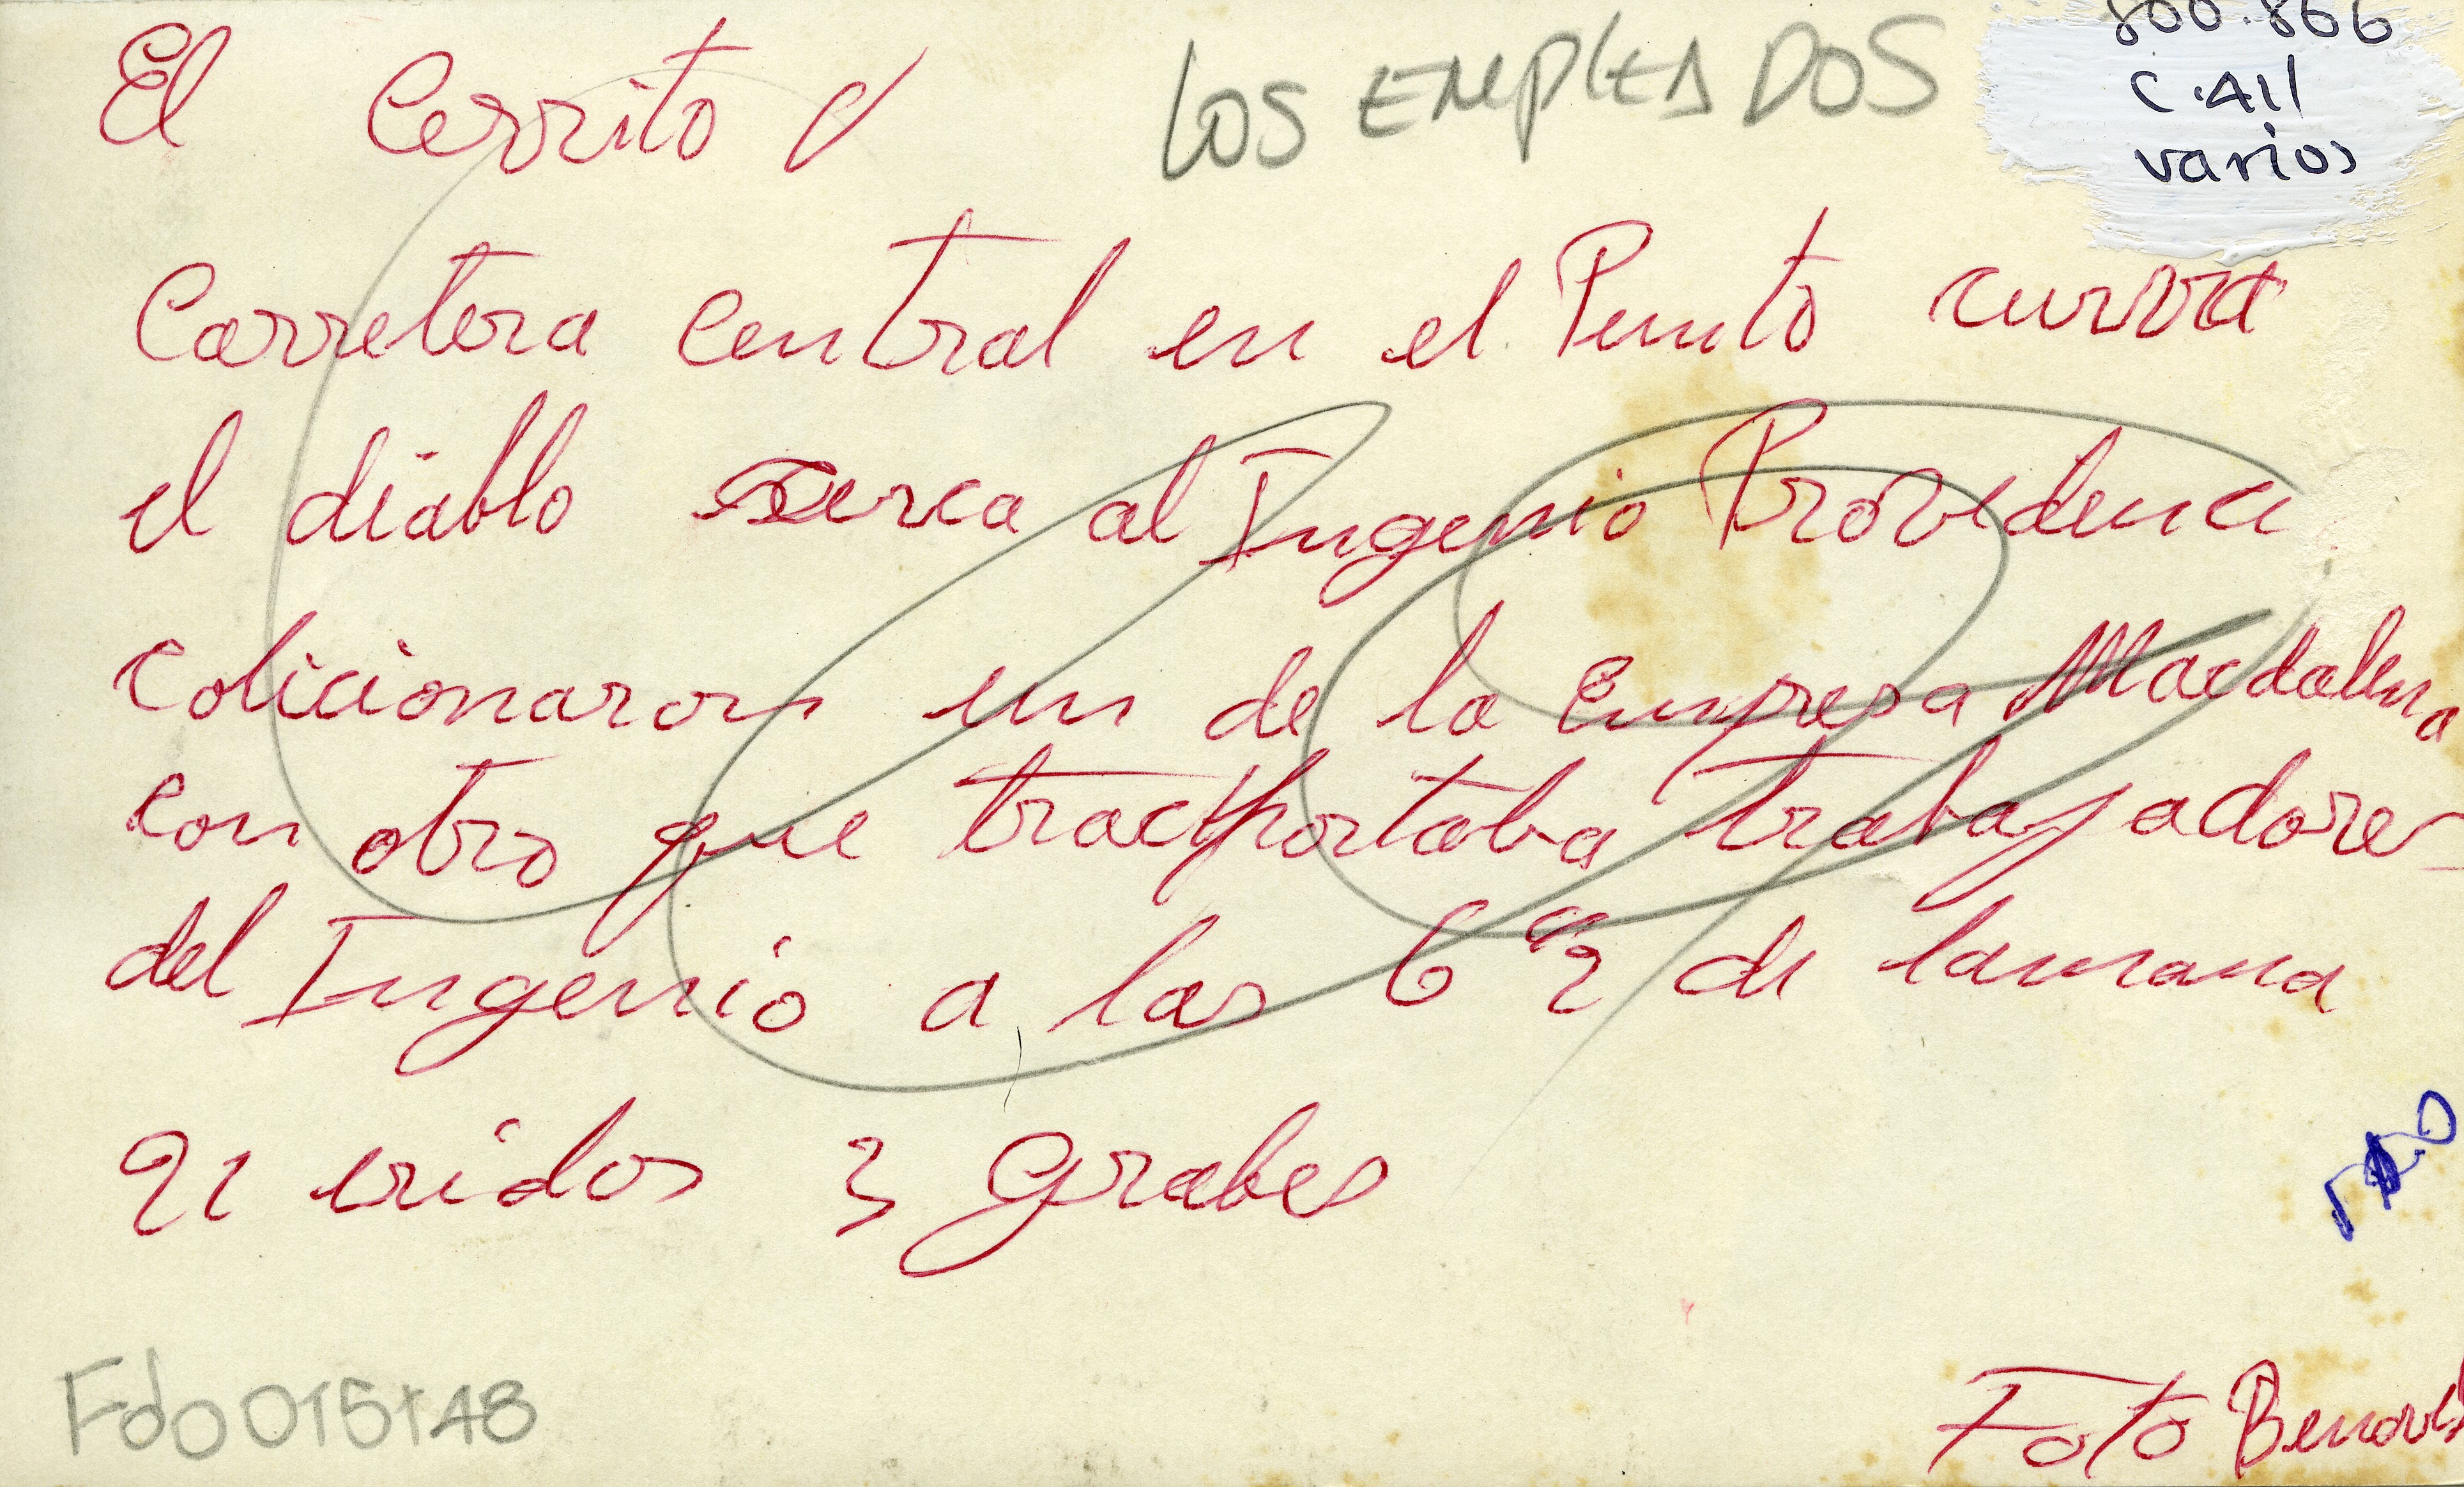 El Cerrito
LOS EMPLEADOS
800.866
C.A11
varios
Carretera Central en el Punto curva
el diablo serca al Ingenio Providenci
colicionaron un de la Empresa Magdalena
con otro que tracportaba trabajadores
del Ingenio a las 6 1/2 de lamana
21 eridos 3 grabes
Fdo 015148
Foto